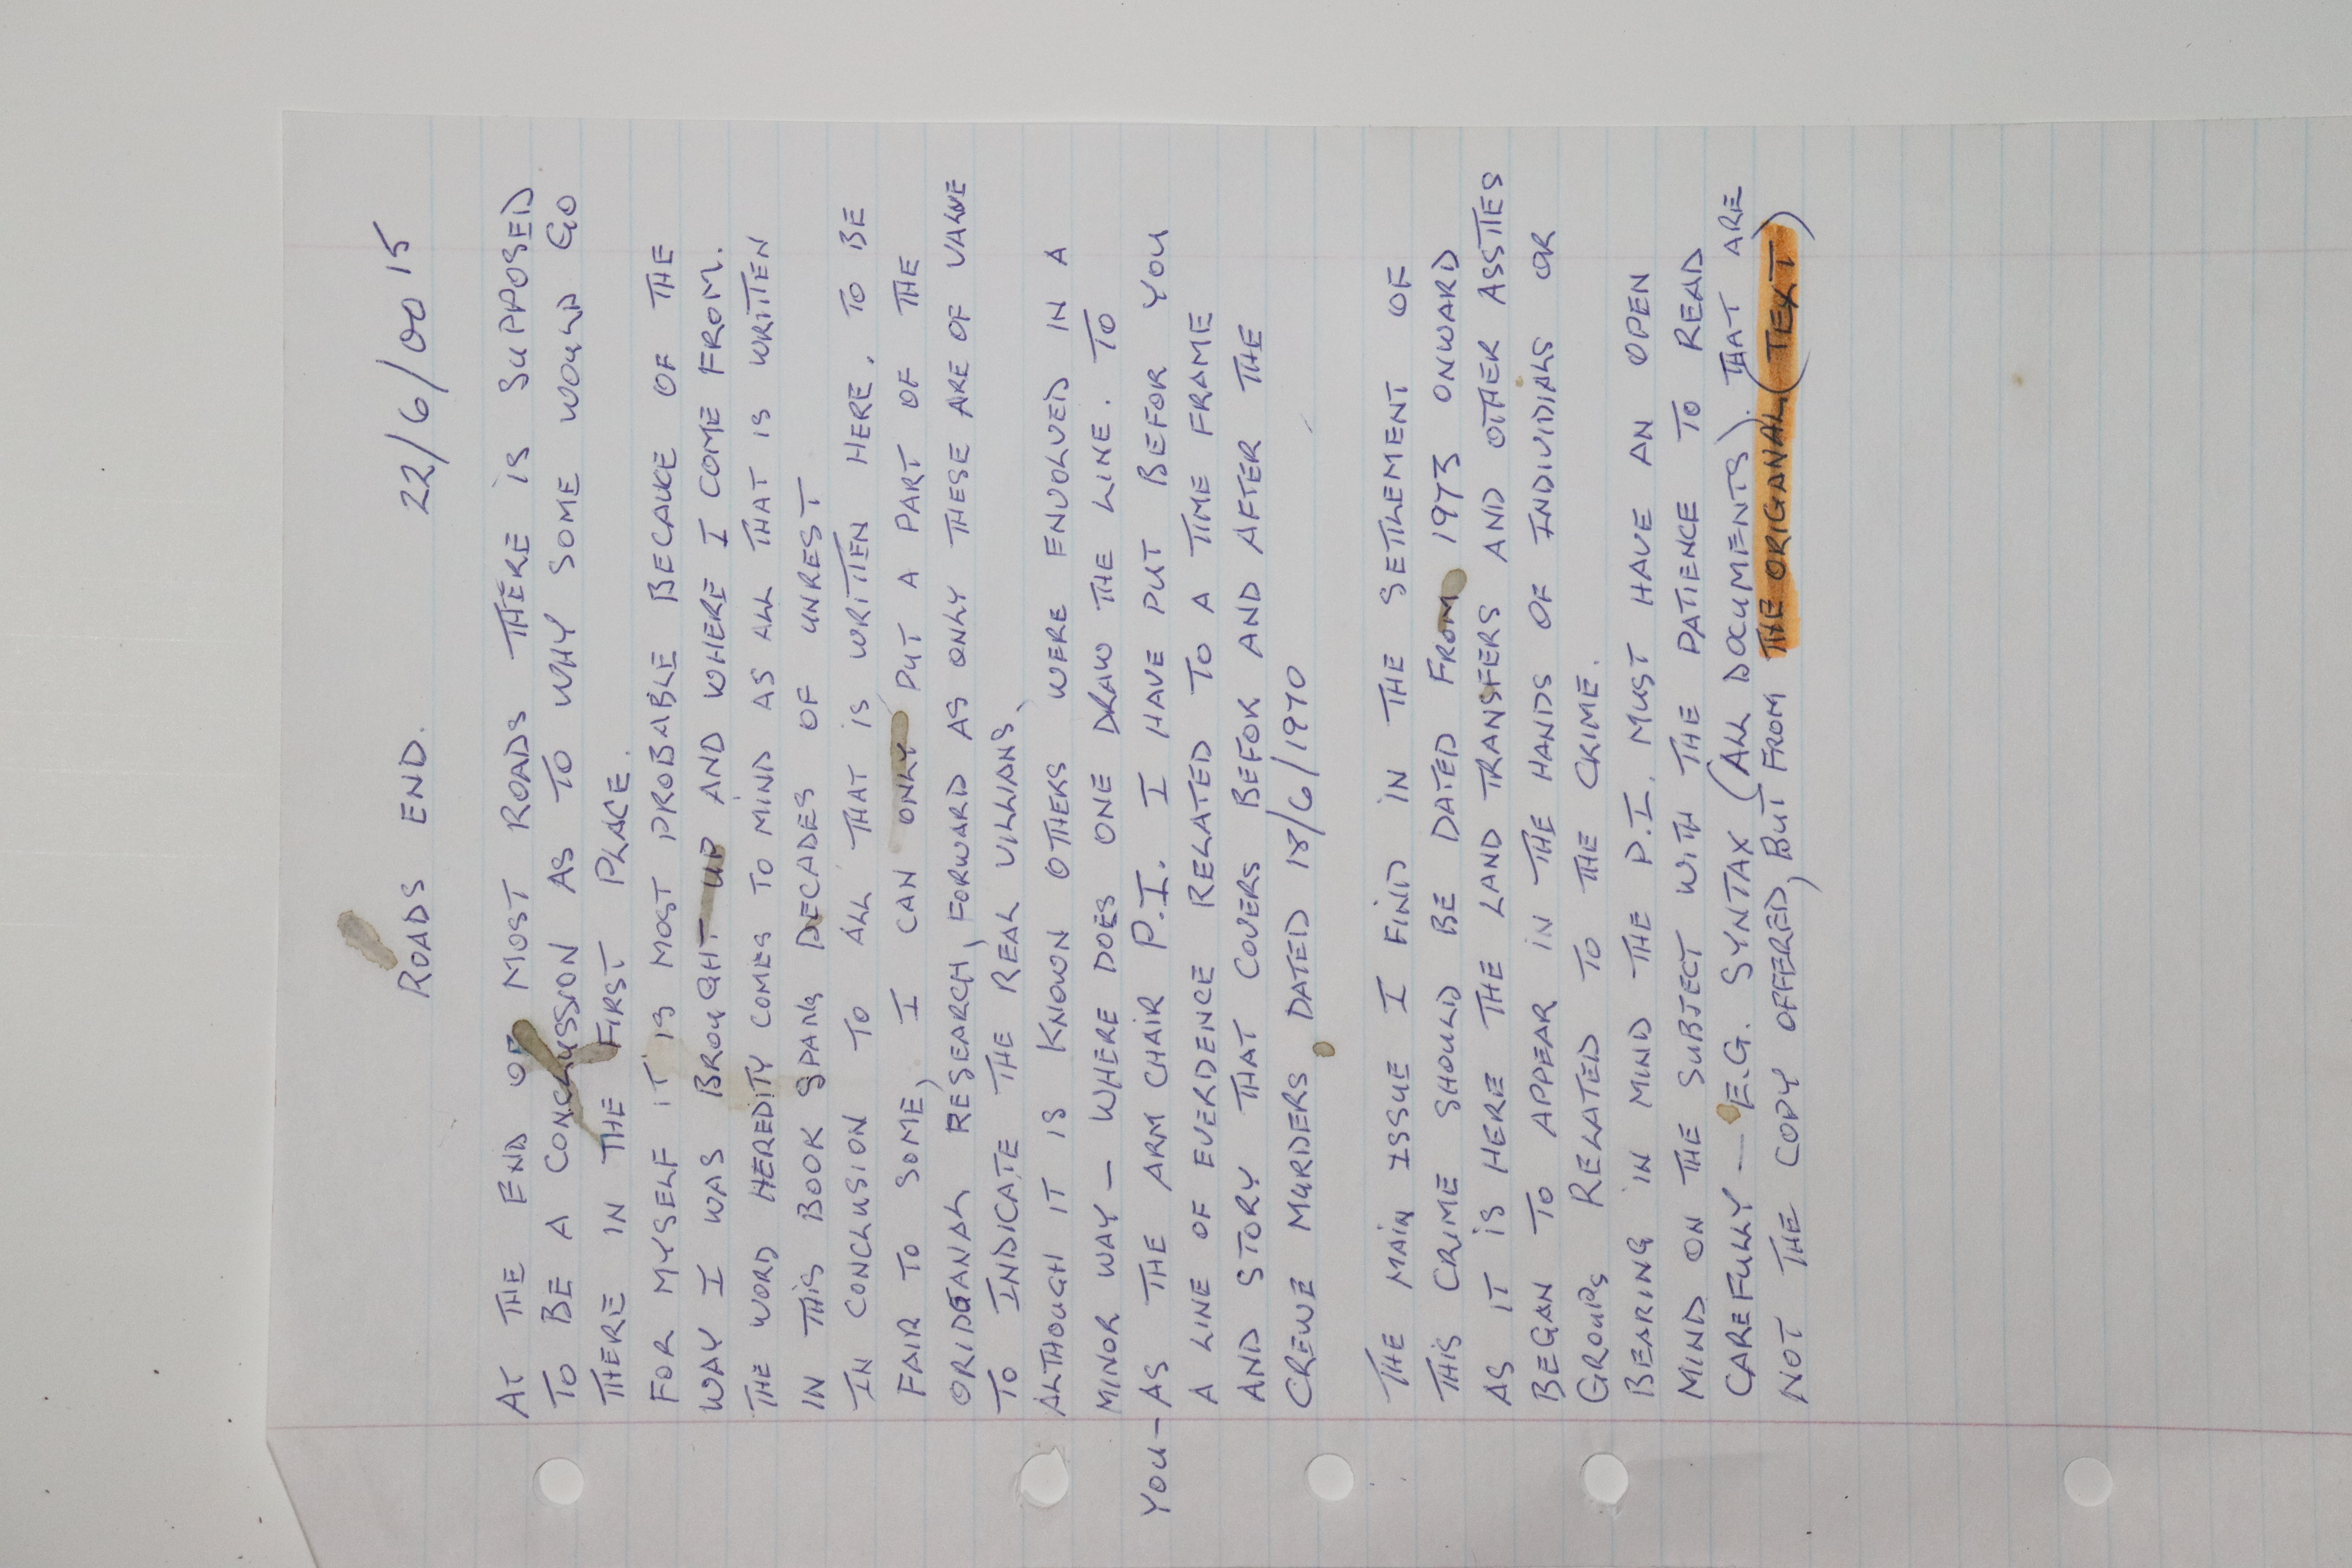 ROADS END. 22/6/00 15
AT THE END OF MOST ROADS THERE IS SUPPOSED
TO BE A CONCLUSSION AS TO WHY SOME WOULD GO
THERE IN THE FIRST PLACE.
FOR MYSELF IT IS MOST PROBABLE BECAUCE OF THE
WAY I WAS BROUGHT UP AND WHERE I COME FROM.
THE WORD HEREDITY COMES TO MIND AS ALL THAT IS WRITTEN
IN THIS BOOK SPANS DECADES OF UNREST
IN CONCLUSION TO ALL THAT IS WRITTEN HERE. TO BE
FAIR TO SOME, I CAN ONLY PUT A PART OF THE
ORIDGANAL RESEARCH, FORWARD AS ONLY THESE ARE OF VALUE
TO INDICATE THE REAL VILLIANS,
ALTHOUGH IT IS KNOWN OTHERS WERE ENVOLVED IN A
MINOR WAY - WHERE DOES ONE DRAW THE LINE. TO
YOU - AS THE ARM CHAIR P.I. I HAVE PUT BEFOR YOU
A LINE OF EVERDENCE RELATED TO A TIME FRAME
AND STORY THAT COVERS BEFOR AND AFTER THE
CREWE MURDERS DATED 18/6/1970
THE MAIN ISSUE I FIND IN THE SETTLEMENT OF
THIS CRIME SHOULD BE DATED FROM 1973 ONWARD
AS IT IS HERE THE LAND TRANSFERS AND OTHER ASSTIES
BEGAN TO APPEAR IN THE HANDS OF INDIVIDIALS OR
GROUPS RELATED TO THE CRIME.
BEARING IN MIND THE P.I. MUST HAVE AN OPEN
MIND ON THE SUBJECT WITH THE PATIENCE TO READ
CAREFULLY - E.G. SYNTAX (ALL DOCUMENTS). THAT ARE
NOT THE COPY OFFERED, BUT FROM THE ORIGANAL (TEXT)